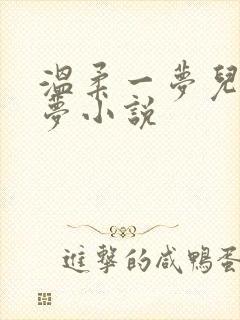 溫柔一夢兒
夢小說
進擊的咸鴨蛋